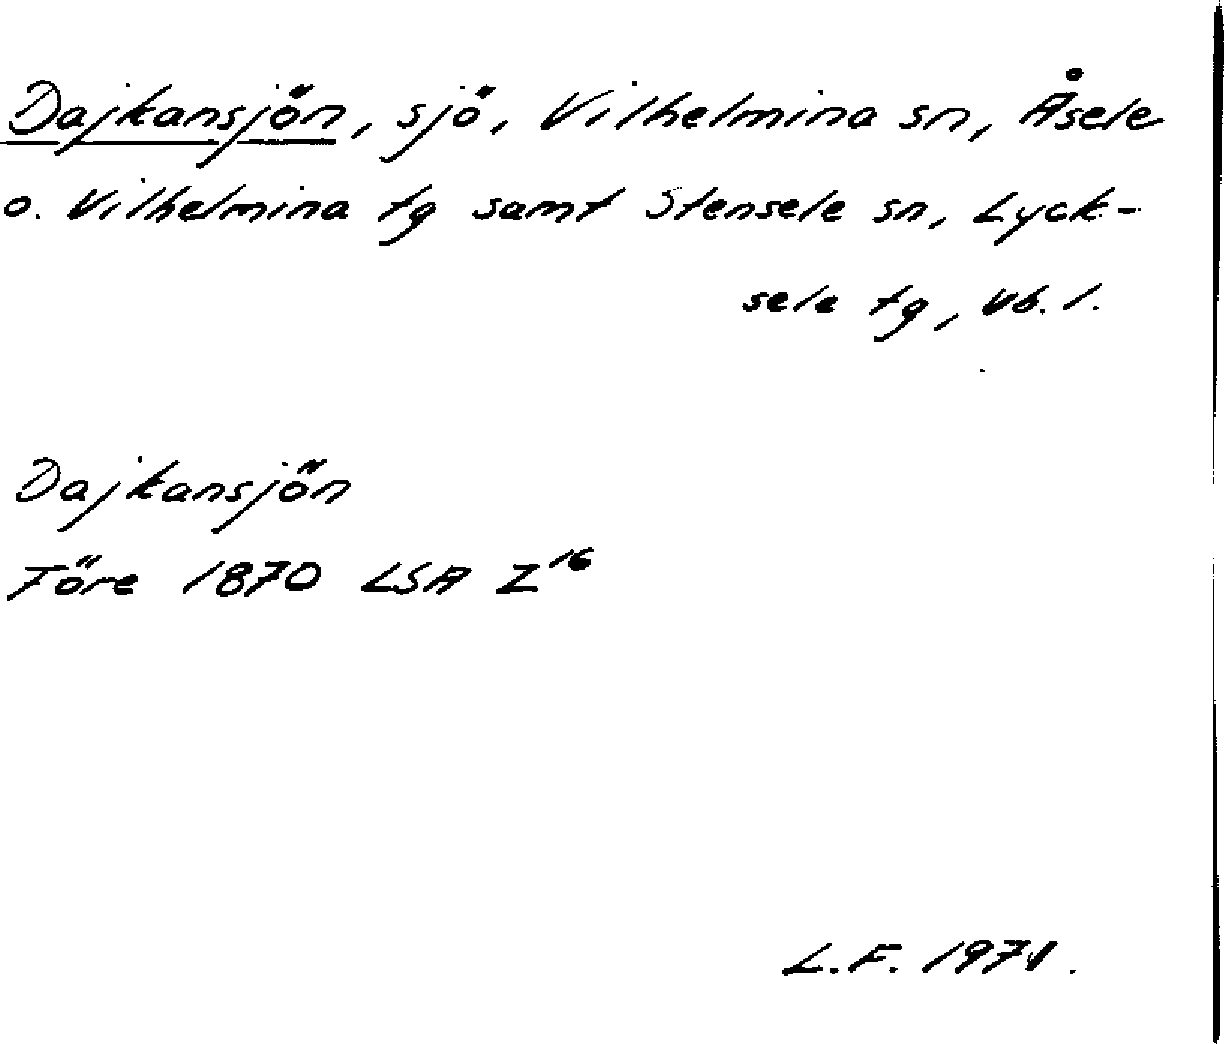 Dajkansjön, sjö, Vilhelmina sn, Åsele
o. Vilhelmina tg samt Stensele sn, Lyck-
sele tg, Vb. l.
Dajkansjön
Före 1870 LSA Z¹⁶
L.F. 1971.